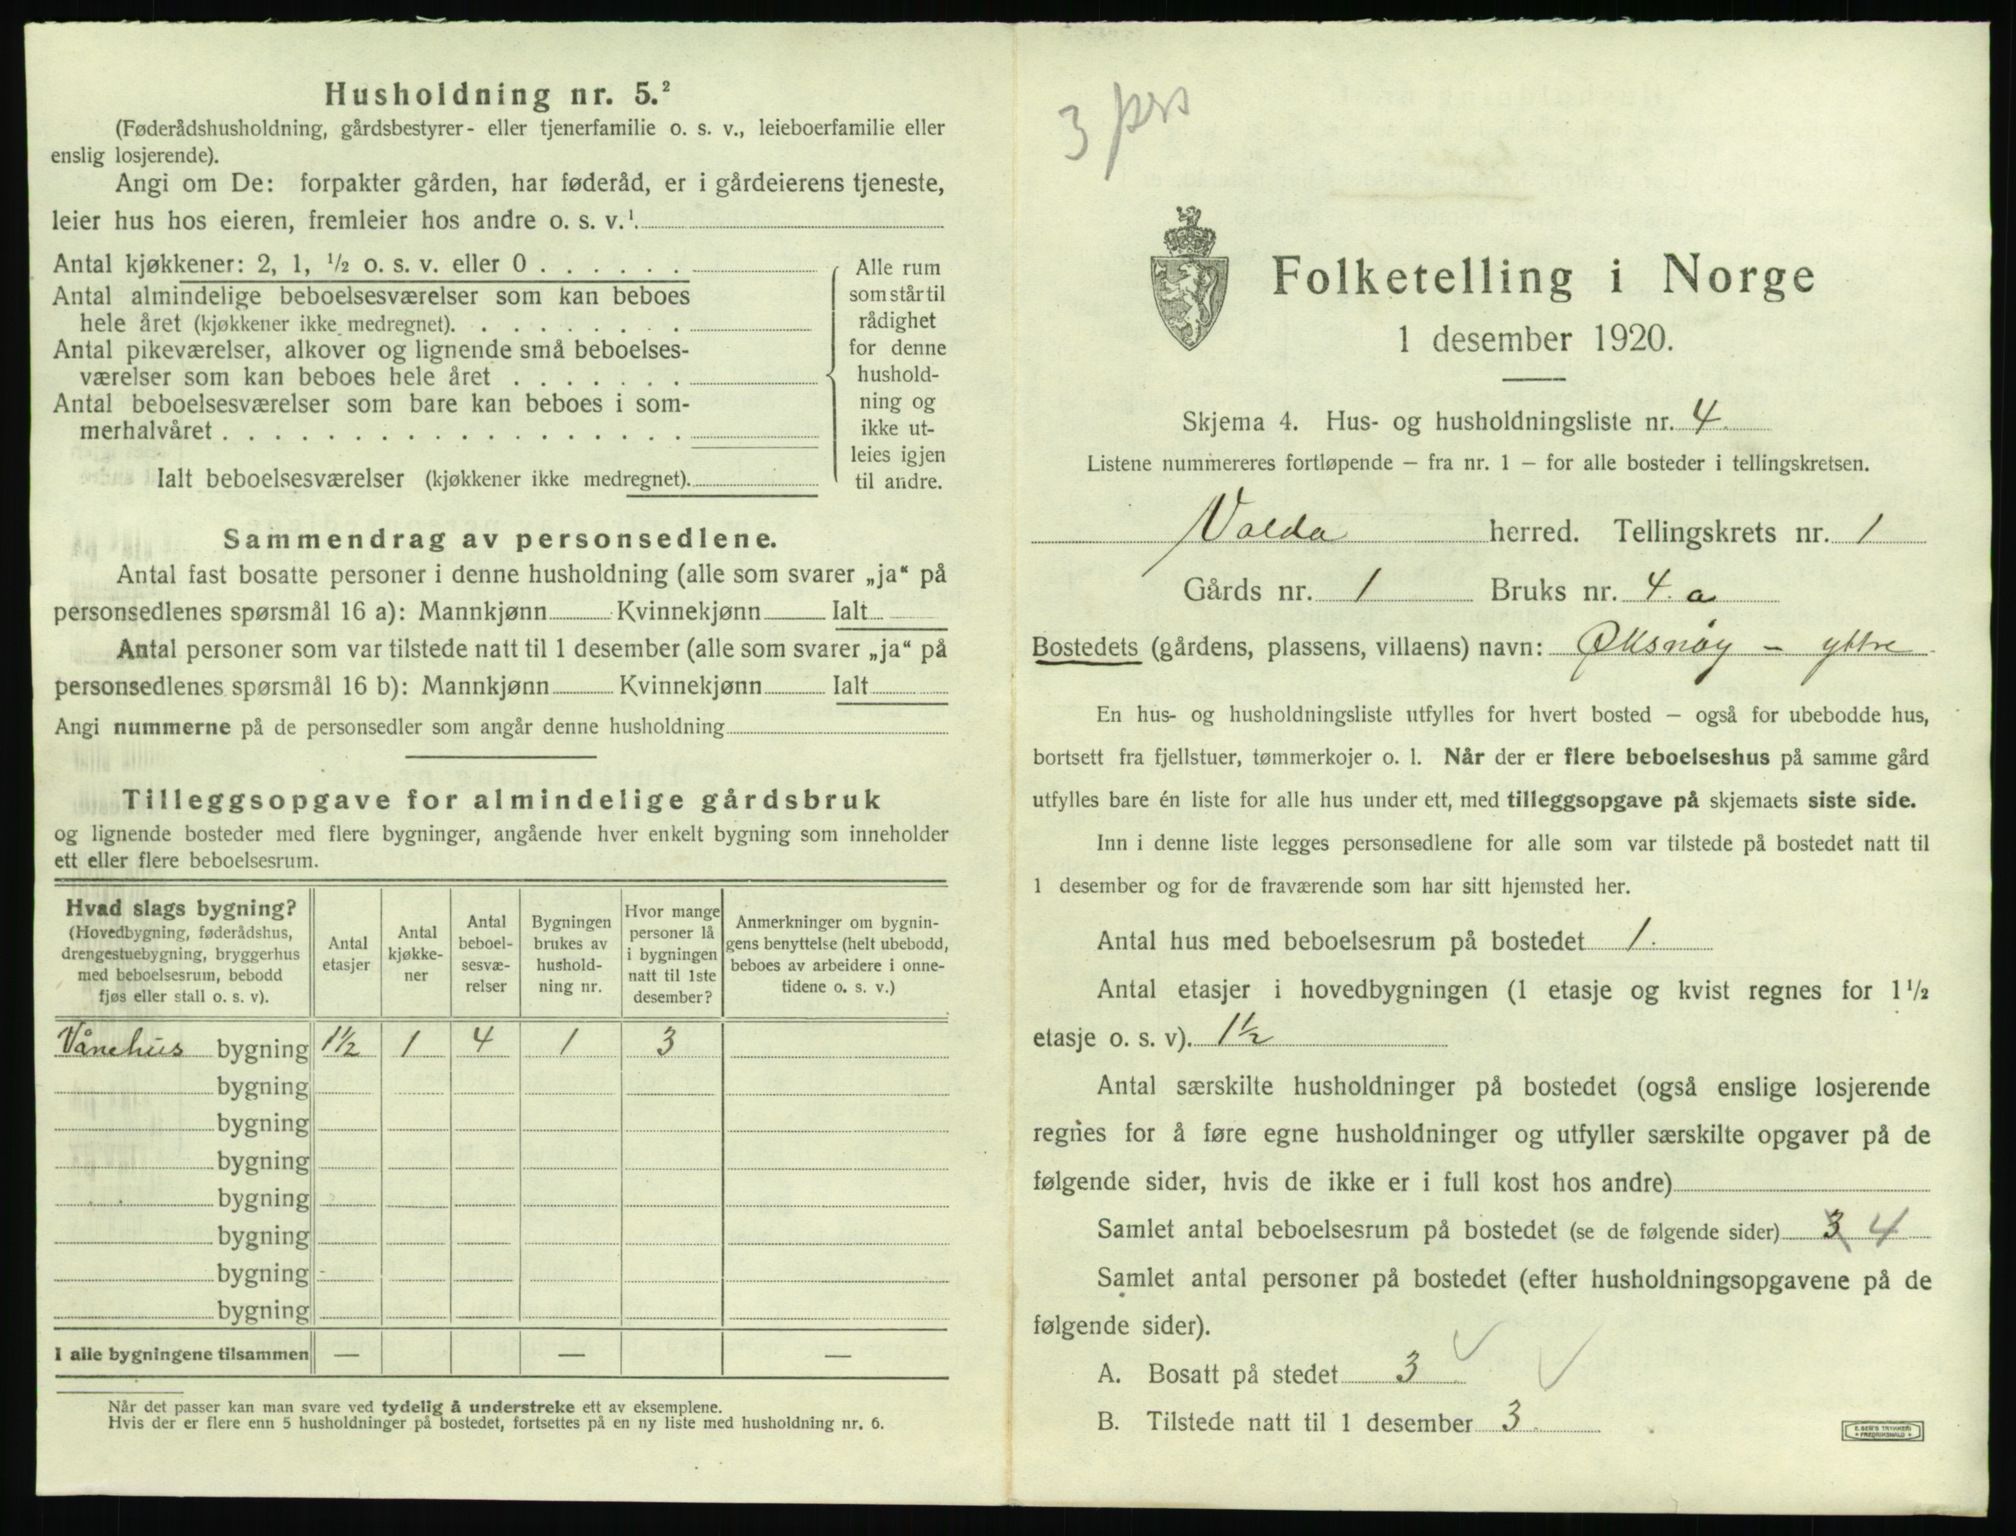 Husholdning nr. 5.²
(Føderådshusholdning, gårdsbestyrer- eller tjenerfamilie o. s. v., leieboerfamilie eller
enslig losjerende).
Angi om De: forpakter gården, har føderåd, er i gårdeierens tjeneste,
leier hus hos eieren, fremleier hos andre o. s. v.¹.
Antal kjøkkener: 2, 1, ½ o. s. v. eller 0 . . . . . .
Antal almindelige beboelsesværelser som kan beboes
hele året (kjøkkener ikke medregnet). . . . . . . . .
Antal pikeværelser, alkover og lignende små beboelses-
værelser som kan beboes hele året . . . . . . .
Antal beboelsesværelser som bare kan beboes i som-
merhalvåret . . . . . . . . . . . . . . . . . .
Ialt beboelsesværelser (kjøkkener ikke medregnet).
Alle rum
som står til
rådighet
for denne
hushold-
ning og
ikke ut-
leies igjen
til andre.
Sammendrag av personsedlene.
Antal fast bosatte personer i denne husholdning (alle som svarer „ja“ på
personsedlenes spørsmål 16 a): Mannkjønn Kvinnekjønn Ialt
Antal personer som var tilstede natt til 1 desember (alle som svarer „ja“ på
personsedlenes spørsmål 16 b): Mannkjønn Kvinnekjønn Ialt
Angi nummerne på de personsedler som angår denne husholdning
Tilleggsopgave for almindelige gårdsbruk
og lignende bosteder med flere bygninger, angående hver enkelt bygning som inneholder
ett eller flere beboelsesrum.
Hvad slags bygning?
(Hovedbygning, føderådshus,
drengestuebygning, bryggerhus
med beboelsesrum, bebodd
fjøs eller stall o. s. v).
Antal
etasjer
Antal
kjøkke-
ner
Antal
beboel-
sesvæ-
relser
Bygningen
brukes av
hushold-
ning nr.
Hvor mange
personer lå
i bygningen
natt til 1ste
desember?
Anmerkninger om bygnin-
gens benyttelse (helt ubebodd,
beboes av arbeidere i onne-
tidene o. s. v.)
Vånehus bygning 1½ 1 4 1 3
bygning
bygning
bygning
bygning
bygning
bygning
bygning
I alle bygningene tilsammen — — —
Når det passer kan man svare ved tydelig å understreke ett av eksemplene.
Hvis der er flere enn 5 husholdninger på bostedet, fortsettes på en ny liste med husholdning nr. 6.
3 pers
Folketelling i Norge
1 desember 1920.
Skjema 4. Hus- og husholdningsliste nr. 4.
Listene nummereres fortløpende – fra nr. 1 – for alle bosteder i tellingskretsen.
Volda herred. Tellingskrets nr. 1
Gårds nr. 1 Bruks nr. 4. a
Bostedets (gårdens, plassens, villaens) navn: Øksnøy – yttre
En hus- og husholdningsliste utfylles for hvert bosted – også for ubebodde hus,
bortsett fra fjellstuer, tømmerkojer o. l. Når der er flere beboelseshus på samme gård
utfylles bare én liste for alle hus under ett, med tilleggsopgave på skjemaets siste side.
Inn i denne liste legges personsedlene for alle som var tilstede på bostedet natt til
1 desember og for de fraværende som har sitt hjemsted her.
Antal hus med beboelsesrum på bostedet 1.
Antal etasjer i hovedbygningen (1 etasje og kvist regnes for 1½
etasje o. s. v). 1½
Antal særskilte husholdninger på bostedet (også enslige losjerende
regnes for å føre egne husholdninger og utfyller særskilte opgaver på de
følgende sider, hvis de ikke er i full kost hos andre)
Samlet antal beboelsesrum på bostedet (se de følgende sider) 3 4
Samlet antal personer på bostedet (efter husholdningsopgavene på de
følgende sider).
A. Bosatt på stedet 3
B. Tilstede natt til 1 desember 3.